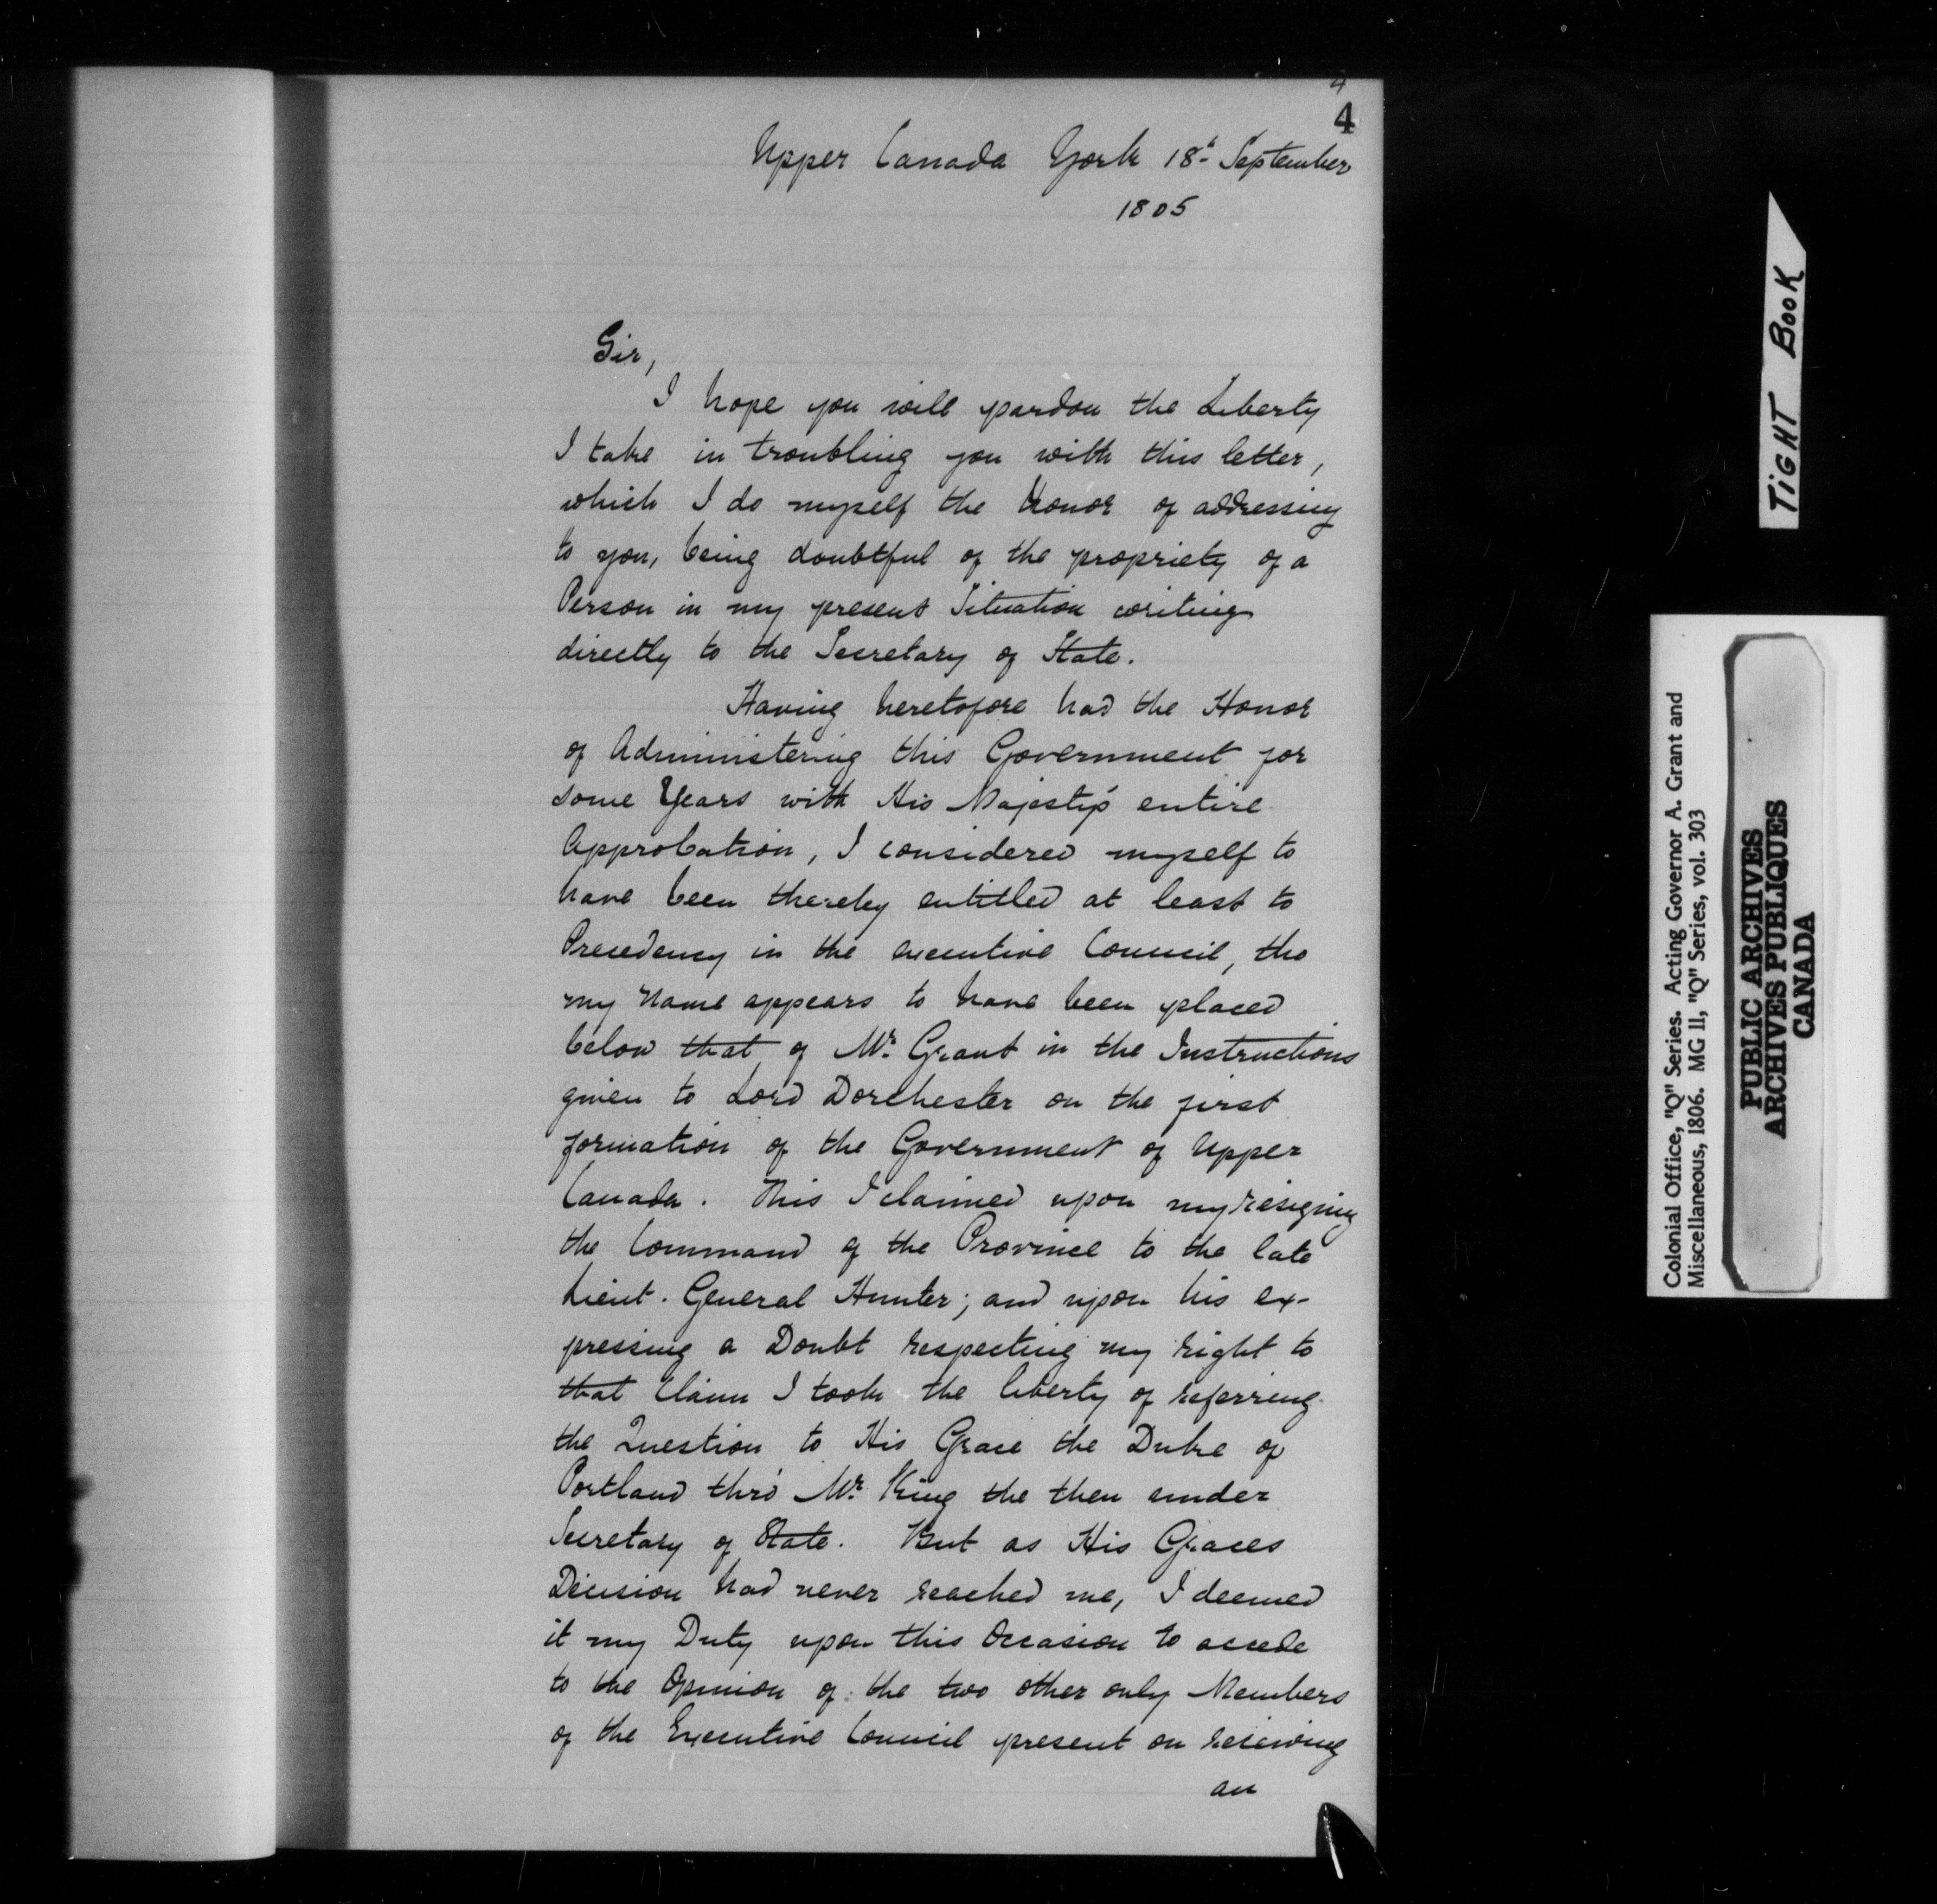 4
4
Upper Canada York 18th September
1805
Sir,
I hope you will pardon the Liberty
I take in troubling you with this letter,
which I do myself the honor of addressing
to you, being doubtful of the propriety of a
Person in my present Situation writing
directly to the Secretary of State.
Having heretofore had the Honor
of Administering this Government for
some Years with His Majesty's entire
Approbation, I considered myself to
have been thereby entitled at least to
Precedency in the executive Council, tho
my Name appears to have been placed
below that of Mr. Grant in the Instructions
given to Lord Dorchester on the first
formation of the Government of Upper
Canada. This I claimed upon my resigning
the Command of the Province to the late
Lieut. General Hunter; and upon his ex-
pressing a Doubt respecting my right to
that Claim I took the liberty of referring
the Question to His Grace the Duke of
Portland thro' Mr. King the then under
Secretary of State. But as His Graces
Decision had never reached me, I deemed
it my Duty upon this Occasion to accede
to the Opinion of the two other only Members
of the Executive Council present on receiving
an
TIGHT BOOK
Colonial Office, "Q" Series. Acting Governor A. Grant and
Miscellaneous, 1806. MG 11, "Q" Series, vol. 303
PUBLIC ARCHIVES
ARCHIVES PUBLIQUES
CANADA